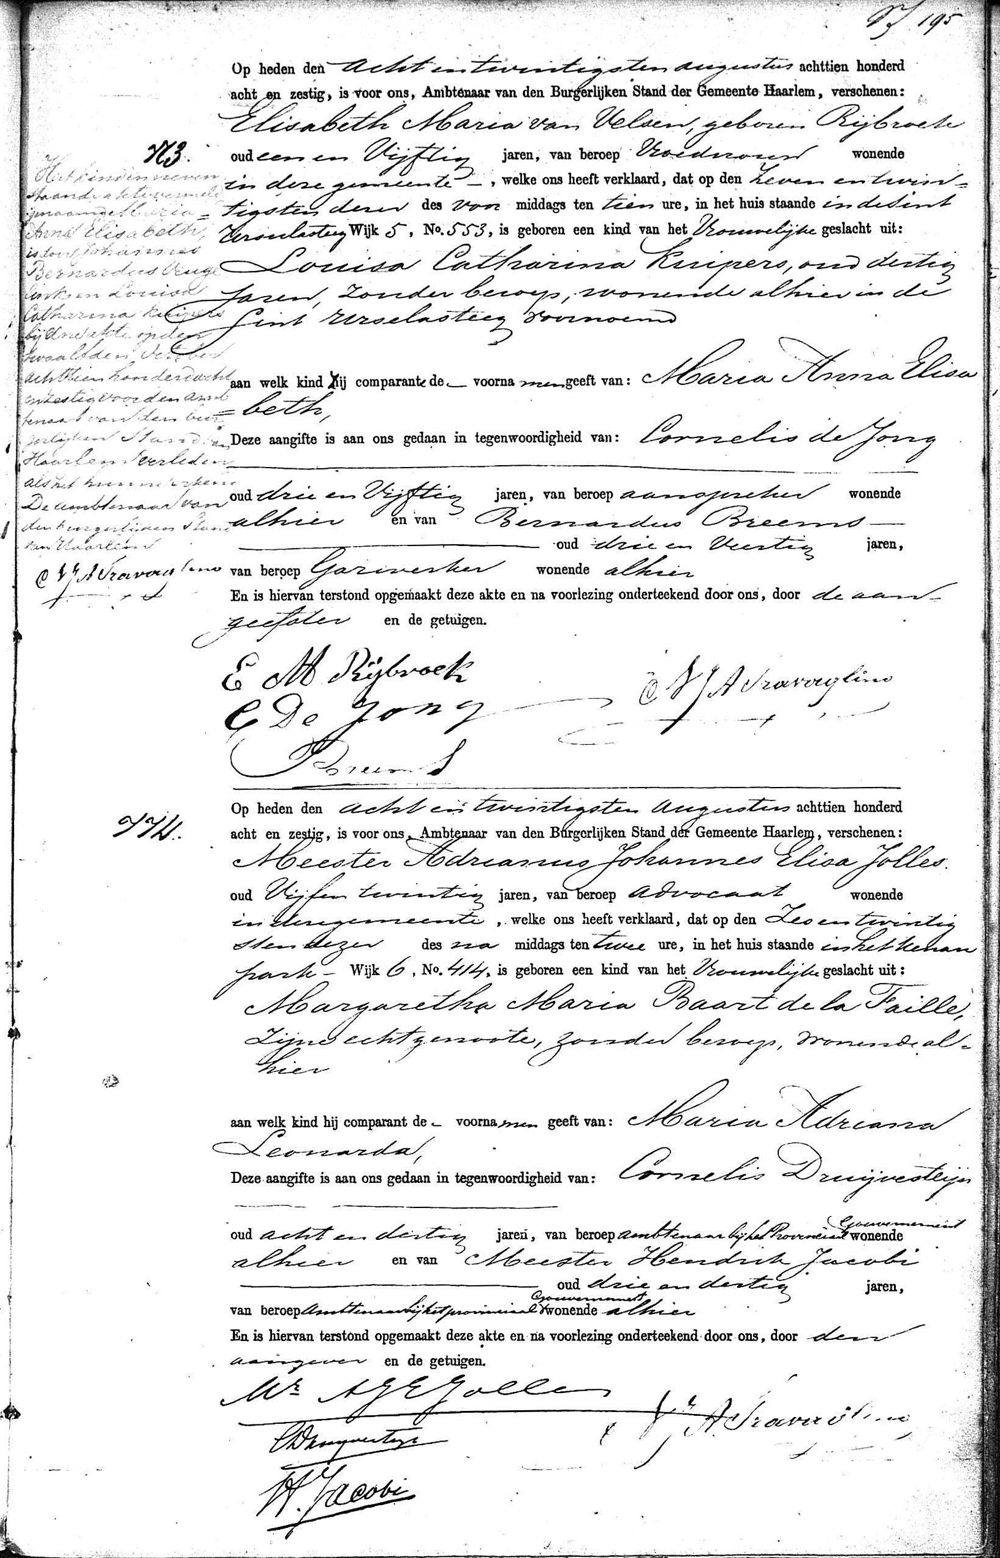 195
Op heden den acht en twintigsten augustus achttien honderd
acht en zestig, is voor ons, Ambtenaar van den Burgerlijken Stand der Gemeente Haarlem, verschenen:
Elisabeth Maria van Velsen, geboren Rijbroek
oud een en Vijftig jaren, van beroep Vroedvrouw wonende
in deze gemeente –, welke ons heeft verklaard, dat op den Zeven en twin=
tigsten dezer des voor middags ten tien ure, in het huis staande in de Sint
Urselasteeg Wijk 5, No. 553, is geboren een kind van het Vrouwelijke geslacht uit:
Louisa Catharina Kuipers, oud dertig
Jaren, zonder beroep, wonende alhier in de
Sint Urselasteeg voornoemd
aan welk kind Zij comparante de – voorna men geeft van: Maria Anna Elisa
=beth,
Deze aangifte is aan ons gedaan in tegenwoordigheid van: Cornelis de Jong
oud drie en Vijftig jaren, van beroep aanspreker wonende
alhier en van Bernardus Breems –
oud drie en Veertig jaren,
van beroep wonende alhier
En is hiervan terstond opgemaakt deze akte en na voorlezing onderteekend door ons, door de aan=
geefster en de getuigen.
773.
Het kind in neven
staande akte vermeld
genaamd Maria
Anna Elisabeth,
is door Johannes
Bernardus
en Louisa
Catharina Kuipers
bij de akte op den
twaalfden
achttienhonderd acht
en zestig voor den amb
tenaar van den bur
gerlijken Stand van
Haarlem verleden
als het hunne erkend
De ambtenaar van
den burgerlijken Stand
van Haarlem
NJA Travaglino
E M Rijbroek
C De Jong
NJA Travaglino
Breems
774.
Op heden den acht en twintigsten augustus achttien honderd
acht en zestig, is voor ons, Ambtenaar van den Burgerlijken Stand der Gemeente Haarlem, verschenen:
Meester Adrianus Johannes Elisa Jolles.
oud Vijf en twintig jaren, van beroep advocaat wonende
in deze gemeente, welke ons heeft verklaard, dat op den Zes en twintig
sten dezer des na middags ten twee ure, in het huis staande in het kenau
park – Wijk 6, No. 414, is geboren een kind van het Vrouwelijke geslacht uit:
Margaretha Maria Baart de la Faille,
Zijne echtgenoote, zonder beroep, wonende al=
hier
aan welk kind hij comparant de – voorna men geeft van: Maria Adriana
Leonarda,
Deze aangifte is aan ons gedaan in tegenwoordigheid van: Cornelis Druijvesteijn
oud acht en dertig jaren, van beroep ambtenaar bij het Provinciaal Gouvernement wonende
alhier en van Meester Hendrik Jacobi
oud drie en dertig jaren,
van beroep Ambtenaar bij het provinciaal Gouvernement wonende alhier
En is hiervan terstond opgemaakt deze akte en na voorlezing onderteekend door ons, door den
aangever en de getuigen.
Mr AJEJolles
NJA Travaglino
CDruyvesteyn
H. Jacobi